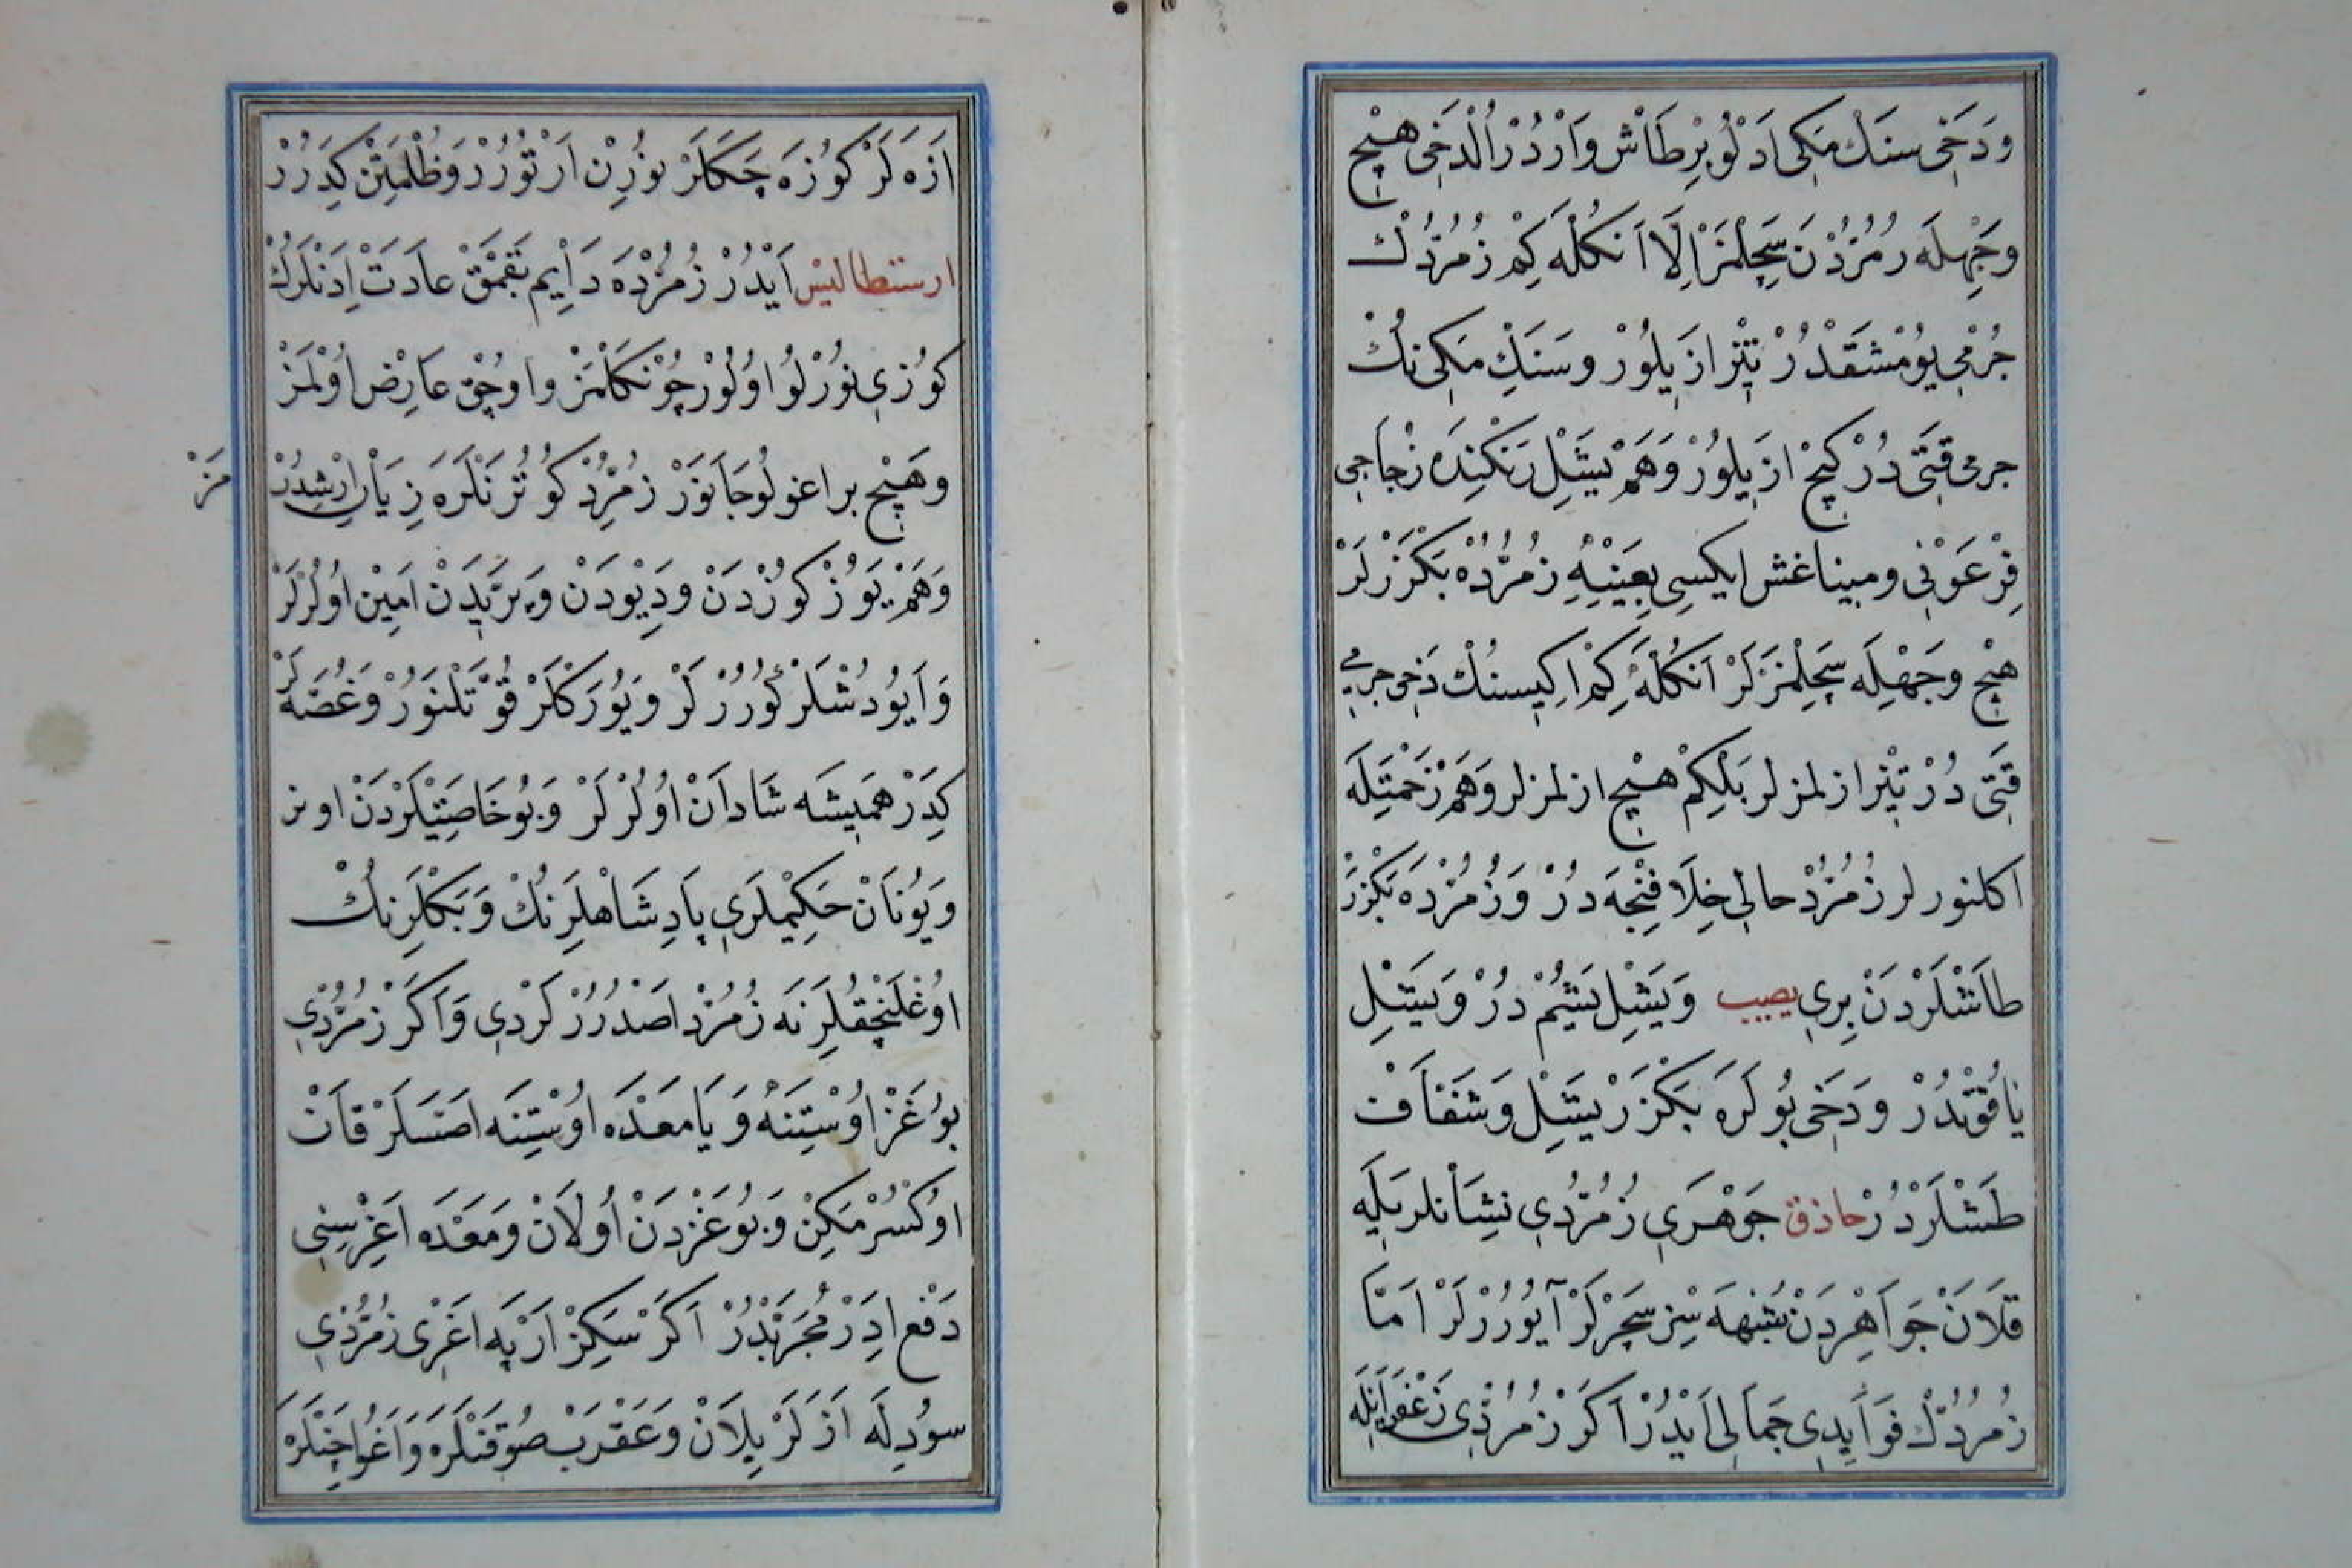 وَدَخَى سنَكْ مَكِى ادَلُو بِرْ طَاشْ وَارْدُرْ اُلْدَخِى هِيْچْ
وَجْهِلَه زُمُرُّدْنَ سَچِلْمَزْ اِلَّا اَنكُلَه كِمْ زُمُرُّدْكْ
جُرْمِى يُومُشَقْدُرْ تِيْزْ ازَيلُورْ وسَنَكِ مَكِى نُكْ
جرمى قَتِى دُرْ كِيچْ ازَيلُورْ وَهَمْ يَشِلْ رَنكْنِدَه زُجَاجِى
فِرْعَوْنِى ومينا غش ايكسِى بِعَيْنِهِ زمُرُّدَه بَكْزَرْلَرْ
هِيْچْ وَجْهِلَه سَچِلْمَزْلَرْ اَنكُلَه كِمْ اِكِيسنُكْ دَخِى جرمى
قَتِى دُرْ تِيْزْ ازلمزلر بَلكِمْ هيْچ ازلمزلر وَهَمْ زَحْمَتِلَه
اكلنورلر زُمُرُّدْ حالى خِلَافِنْجَه دُرْ وَزُمُرُّدَه بَكْزَرْ
طاَشْلَرْدَنْ بِرِى يصيب وَيَشِلْ يَشِمْ دُرْ وَيَشِلْ
يَاقُوتْدُرْ ودَخَى بُولَرَه بَكْزَرْ يَشِلْ وَشَفَّافْ
طَشْلَرْدُرْ حاذق جَوْهَرِى زُمُرُّدِى نِشَانلر بِلَه
قَلَانْ جَوَاهِرْدَنْ شُبْهَه سِزْ سَچَرْلَرْ آيُورُرْلَرْ اَمَّا
زُمُرُّدُكْ فَوَايدِى جَمَالِى اَيْدُرْ اَكَرْ زُمُرُّدِى زَعْفَرَانِلَه
اَزَه لَرْ كُوزَه چَكَلَرْ نُورِنْ اَرْتُورُرْ وَظُلْمَتِنْ كِدَرُرْ
ارستطاليس اَيْدُرْ زُمُرُّدَه دَاِيم بَقْمَقْ عادَتْ اِدَنْلَرُكْ
كُوزِى نُورْلُو اوُلُورْ چُونكَلْمَزْ واوچُقْ عَارِضْ اُولْمَزْ
وهَيْچْ بر اغولُو جَانَوَرْ زمُرُّدْ كُوتُرَنْلَرَه زِيَانِ ارْشِدُرْ
مَزْ
وَهَمْ يَوُزْ كُوزْدَنْ ودِيوْدَنْ وَپَرِيدَنْ اَمِيْن اوُلُرْلَرْ
وَاَيُو دُشْلَرْ كُورُرْلَرْ وَيُورَكْلَرْ قُوَّتْلَنُورْ وَغُصَّه لَرْ
كِدَرْ هَمِيشَه شَادَانْ اوُلُرْلَرْ وَبُو خَاصِيَّتْلَرْدَنْ اوترُ
وَيُونَانْ حَكِيْملَرِى پَادِشَاهلَرِنُكْ وَبَكْلَرِنُكْ
اوُغْلَنْجِقْلَرِنَه زُمُرُّدْ اصْدُرُرْلَرْدِى وَاَكَرْ زُمُرُّدِى
بوُغَزْ اوُسْتِنَه وَيَا مَعْدَه اوُسْتِنَه اصَسَلَرْ قَانْ
اوُكْسُرْمَكِنْ وَبُوغَزْدَنْ اُولَانْ وَمَعْدَه اَغْرِسِنِى
دَفْع ادَرْ مُجَرَّبْدُرْ اَكَرْ سَكِزْ اَرْپَه اغَرِى زمُرُّدِى
سوُدِلَه اَزَلَرْ يِلَانْ وَعَقْرَبْ صُوقَنْلَرَه وَاَغُو اِچَنْلَرَه